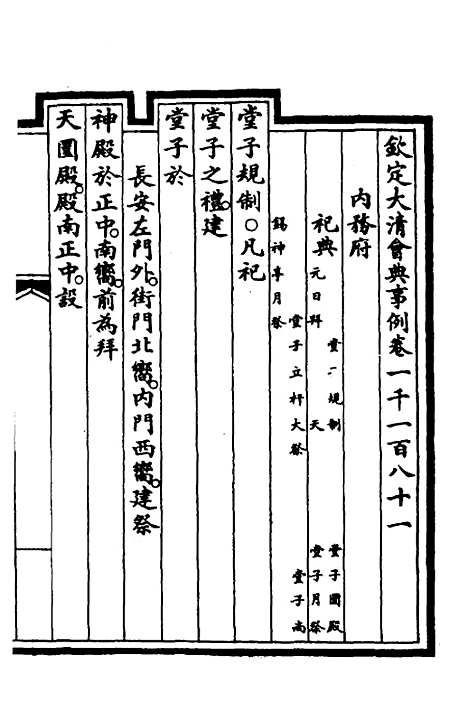 欽定大清會典事例卷一千一百八十一
內務府
祀典
堂子規制
堂子圜殿
元日拜天
堂子月祭
堂子立杆大祭
堂子尚
錫神亭月祭
堂子規制○凡祀
堂子之禮。建
堂子於
長安左門外。街門北嚮。內門西嚮。建祭
神殿於正中。南嚮。前為拜
天圜殿。殿南正中。設